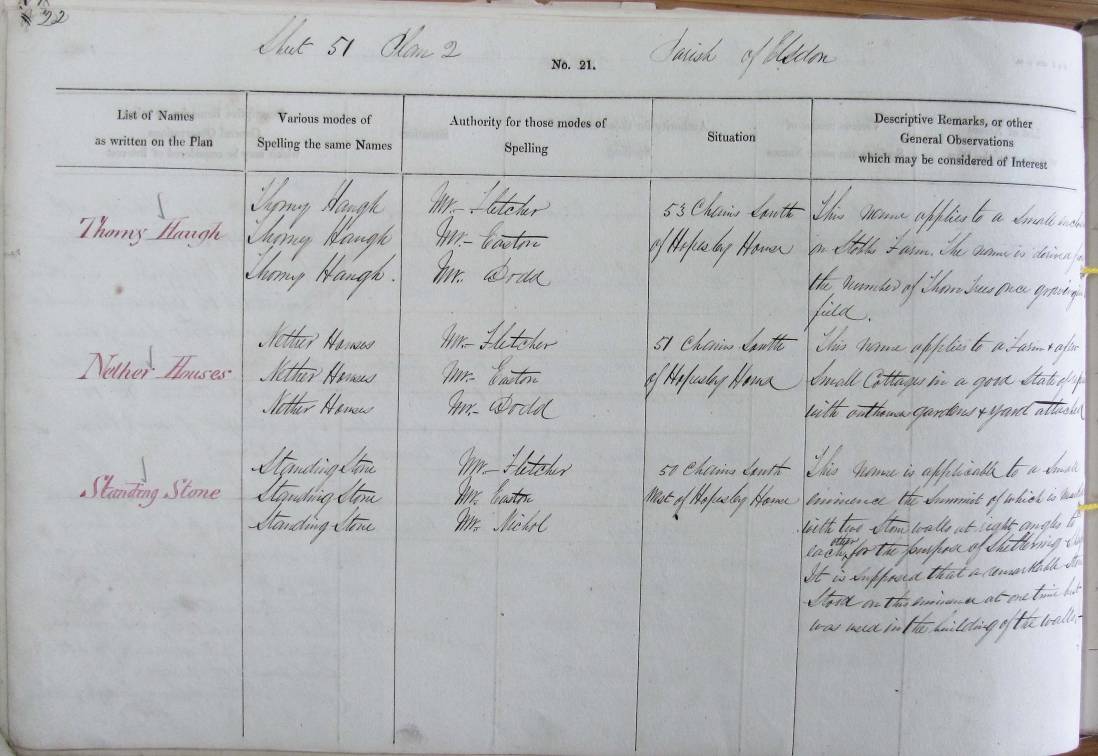 22
Sheet 51 Plan 2
No. 21.
Parish of Elsdon
List of Names
as written on the Plan
Various modes of
Spelling the same Names
Authority for those modes of
Spelling
Situation
Descriptive Remarks, or other
General Observations
which may be considered of Interest
Thorny Haugh
Thorny Haugh
Thorny Haugh
Thorny Haugh.
Mr. Fletcher
Mr. Easton
Mr. Dodd
53 Chains South
of Hopesley House
This name applies to a small
on Stobbs Farm. The name is derived
the number of Thorn Trees once growing
field.
Nether Houses
Nether Houses
Nether Houses
Nether Houses
Mr. Fletcher
Mr. Easton
Mr. Dodd
51 Chains South
of Hopesley House
This name applies to a Farm & a few
Small Cottages in a good State of
with outhouses gardens & yard attached
Standing Stone
Standing Stone
Standing Stone
Standing Stone
Mr. Fletcher
Mr. Easton
Mr. Nichol
50 Chains South
West of Hopesley House
This name is applicable to a Small
eminence the Summit of which is
with two Stone walls at right angles to
each other for the purpose of Sheltering
It is Supposed that a remarkable
Stood on this eminence at one time but
was used in the building of the walls.